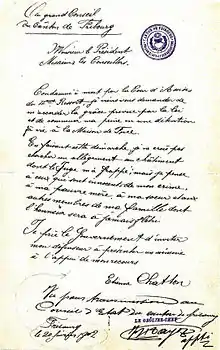 Au grand Conseil
du Canton de Fribourg
Monsieur le Président
Messieurs les Conseillers
Condamné à mort par la Cour d'Assises
du IIme Ressort, je viens vous demander de
m'accorder la grâce prévue par la loi
et de commuer ma peine en une détention
à vie à la Maison de Force.
En faisant cette démarche, je ne crois pas
chercher un allègement au châtiment
dont le juge m'a frappé, mais je pense
à ceux qui sont innocents de mon crime,
à ma pauvre mère à ma sœur et aux
autres membres de ma famille dont
l'honneur sera à jamais
Je prie le Gouvernement d'inviter
mon défenseur à présenter un mémoire
à l'appui de mon recours
Etienne Chatton
Vu pour transmission au
Conseil d'Etat du canton de Fribourg
LE GREFFIER-CHEF
Fribourg
le 20 1902